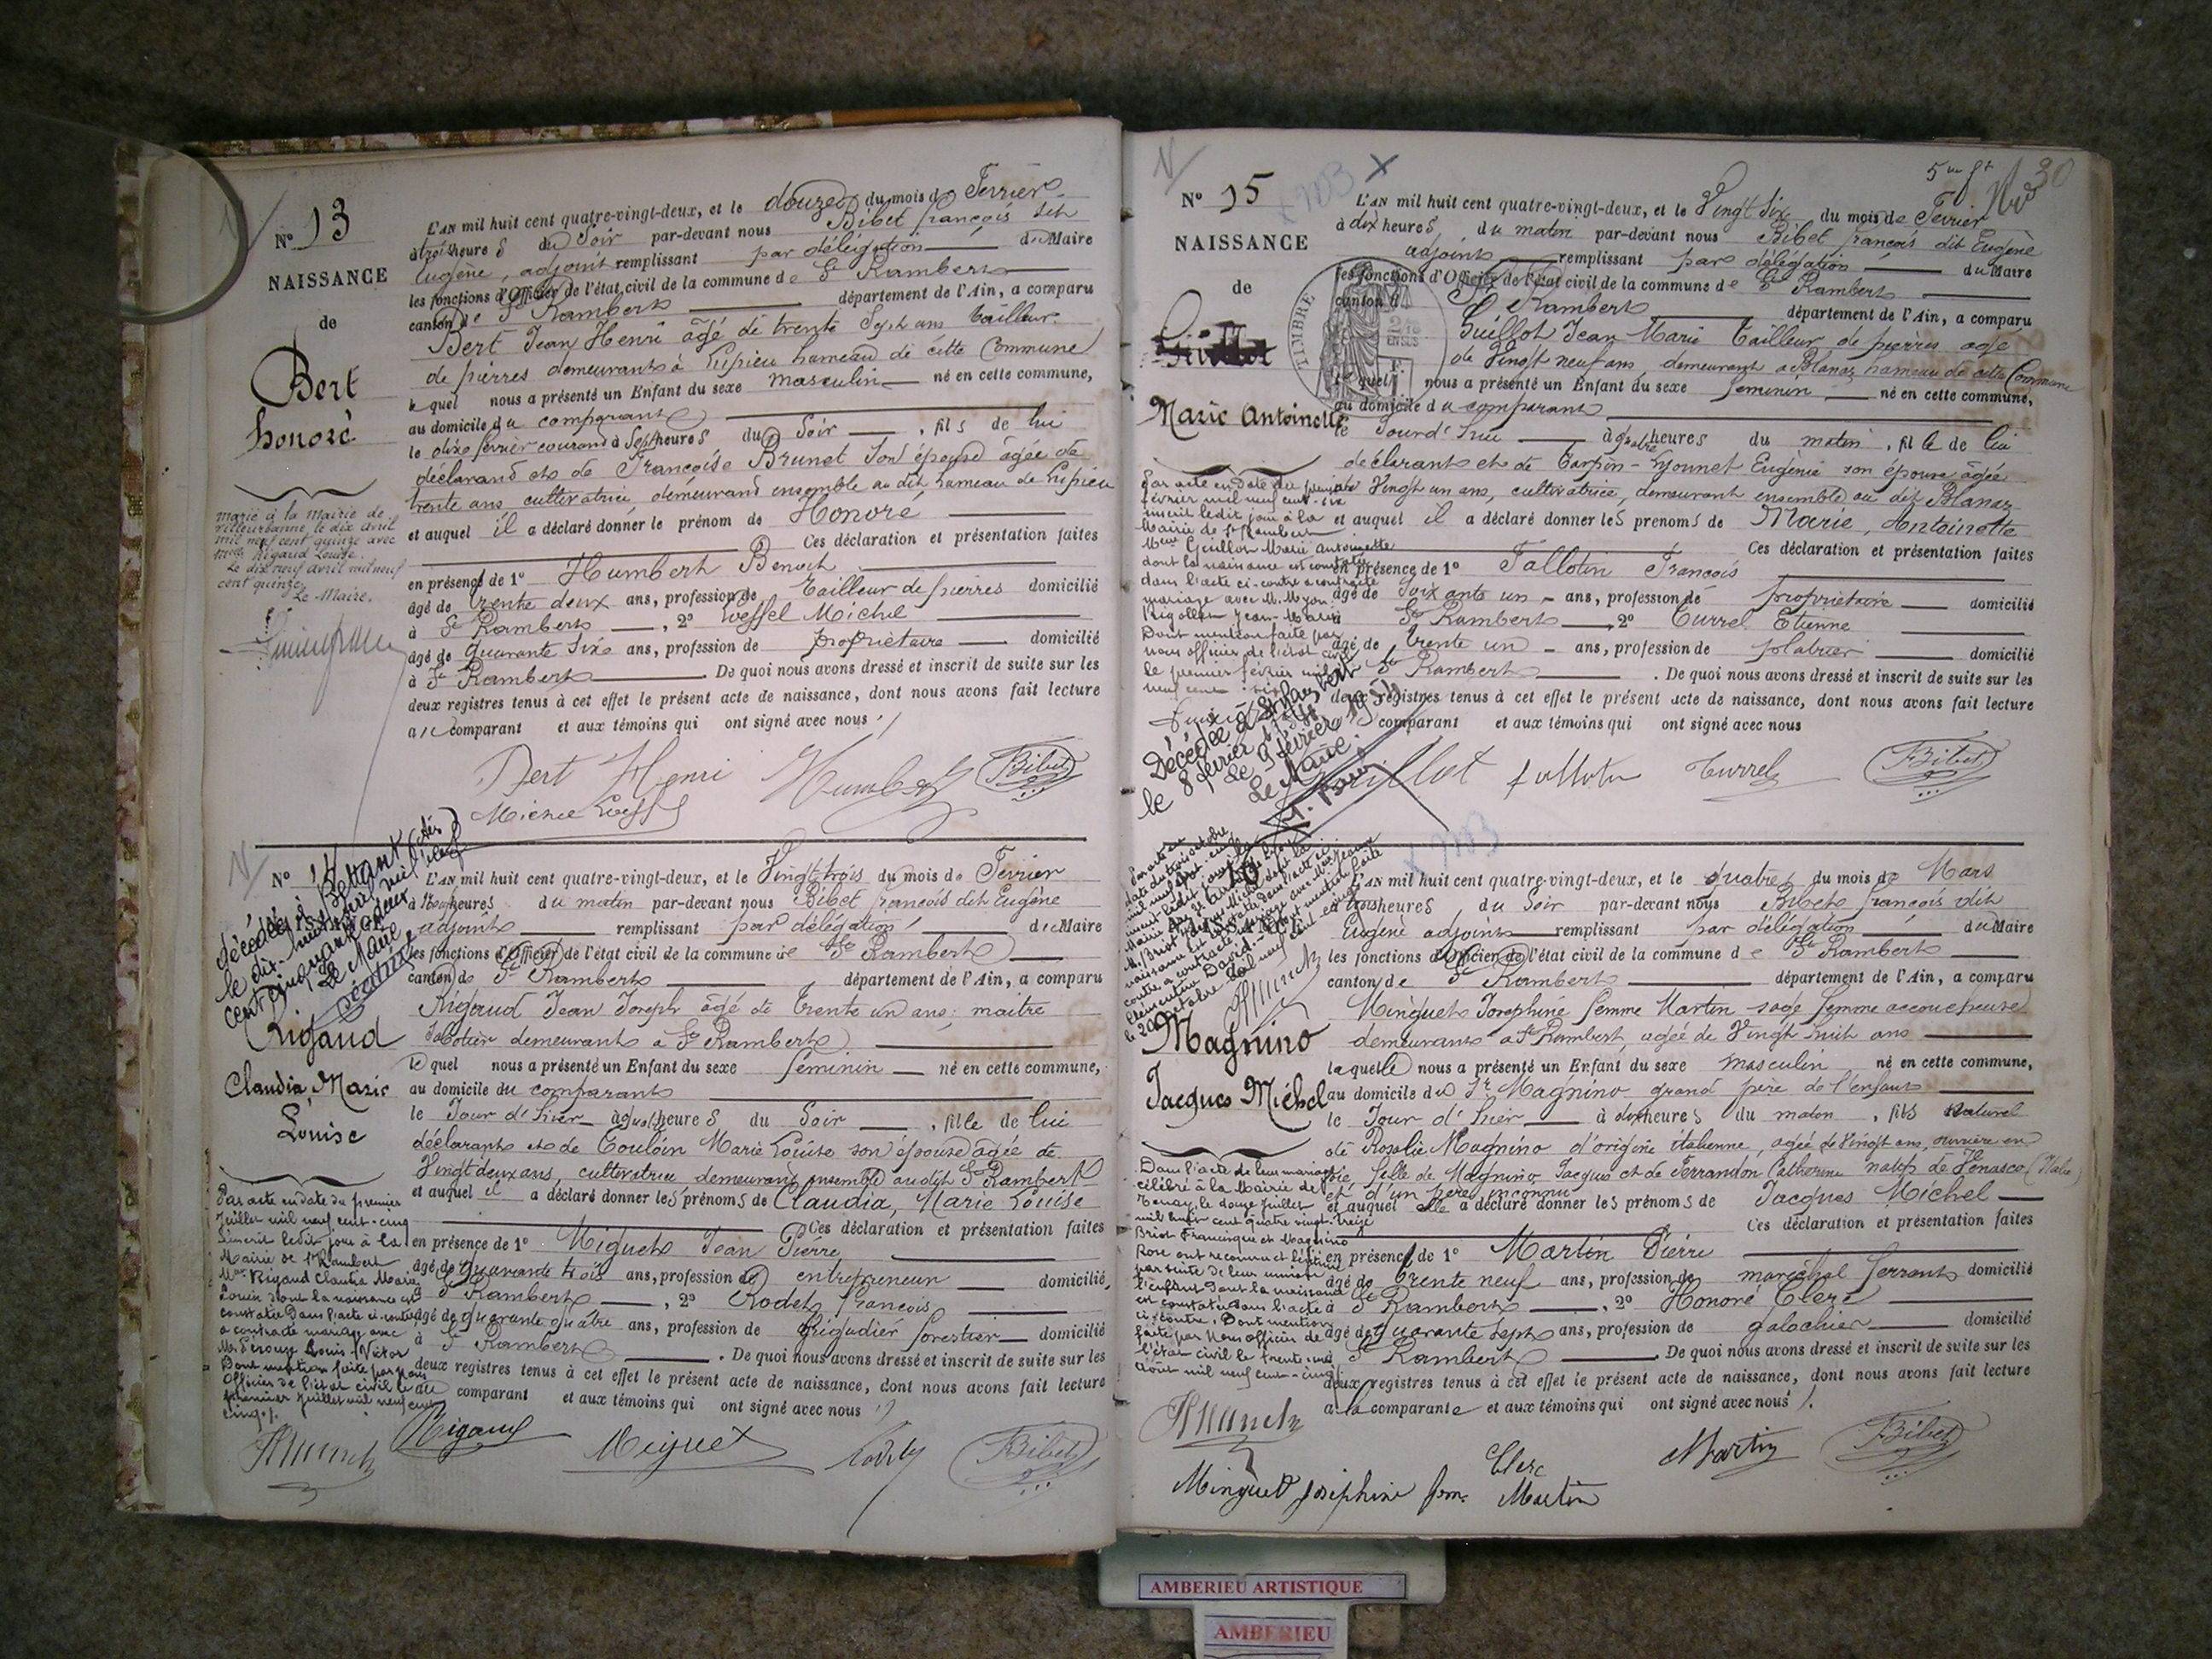 N° 13
NAISSANCE
de
Bert
honoré
L'AN mil huit cent quatre-vingt-deux, et le douze du mois de Ferrier
à trois heures du Soir par-devant nous Bibet françois dit
Eugène, adjoint remplissant par délégation du Maire
les fonctions d'Officier de l'état civil de la commune de St Rambert
canton de St Rambert département de l'Ain, a comparu
Bert Jean Henri âgé de trente Sept ans tailleur
de pierres demeurant à Lupieu hameau de cette Commune
le quel nous a présenté un Enfant du sexe masculin né en cette commune,
au domicile du comparant
le dix ferrier courant à Sept heures du Soir , fils de lui
déclarant et de Françoise Brunet Son épouse âgée de
trente ans cultivatrice, demeurant ensemble au dit hameau de Lupieu
et auquel il a déclaré donner le prénom de Honoré
Ces déclaration et présentation faites
en présence de 1° Humbert Benoit
âgé de trente deux ans, profession de Tailleur de pierres domicilié
à St Rambert , 2° Michel
âgé de quarante Six ans, profession de propriétaire domicilié
à St Rambert . De quoi nous avons dressé et inscrit de suite sur les
deux registres tenus à cet effet le présent acte de naissance, dont nous avons fait lecture
au comparant et aux témoins qui ont signé avec nous
marié à la Mairie de
Villeurbanne le dix avril
mil neuf cent quinze avec
Melle Rigaud Louise.
Le dix neuf avril mil neuf
cent quinze
Le Maire.
Bert Henri Humbert Bibet
Michel
N° 14
décédée à Bettant (Ain)
le dix-huit mil neuf
cent cinquante deux
Le Maire
Rigaud
Claudia Marie
Louise
L'AN mil huit cent quatre-vingt-deux, et le Vingt trois du mois de Ferrier
à heures du matin par-devant nous Bibet françois dit Eugène
adjoint remplissant par délégation du Maire
les fonctions d'Officier de l'état civil de la commune de St Rambert
canton de St Rambert département de l'Ain, a comparu
Rigaud Jean Joseph âgé de trente un ans, maitre
Sabotier demeurant à St Rambert
le quel nous a présenté un Enfant du sexe feminin né en cette commune,
au domicile du comparant
le Jour d'hier à quatre heures du Soir , fille de lui
déclarant et de Touloin Marie Louise son épouse âgée de
Vingt deux ans, cultivatrice demeurant ensemble au dit St Rambert
et auquel il a déclaré donner les prénoms de Claudia, Marie Louise
Ces déclaration et présentation faites
en présence de 1° Miguet Jean Pierre
âgé de quarante trois ans, profession de entrepreneur domicilié
à St Rambert , 2° Rodet françois
âgé de quarante quatre ans, profession de Brigadier forestier domicilié
à St Rambert . De quoi nous avons dressé et inscrit de suite sur les
deux registres tenus à cet effet le présent acte de naissance, dont nous avons fait lecture
au comparant et aux témoins qui ont signé avec nous
Par acte en date du premier
Juillet mil neuf cent-cinq
inscrit ledit jour à la
Mairie de St Rambert
Mme Rigaud Claudia Marie
Louise dont la naissance est
constatée dans l'acte ci-contre
a contracté mariage avec
Mr Louis-Victor
Dont mention faite par nous
Officier de l'état civil le
premier Juillet mil neuf cent
cinq.
Rigaud Miguet Rodet Bibet
30
N° 15
NAISSANCE
de
Guillot
Marie Antoinette
TIMBRE
L'AN mil huit cent quatre-vingt-deux, et le Vingt Six du mois de Ferrier
à dix heures, du matin par-devant nous Bibet françois dit Eugène
adjoint remplissant par délégation du Maire
les fonctions d'Officier de l'état civil de la commune de St Rambert
canton de St Rambert département de l'Ain, a comparu
Guillot Jean Marie Tailleur de pierres agé
de Vingt neuf ans, demeurant à Blanaz hameau de cette Commune
le quel nous a présenté un Enfant du sexe feminin né en cette commune,
au domicile du comparant
le Jourd'hui à quatre heures du matin , fille de lui
déclarant et de Carpin-Lyonnet Eugènie son épouse âgée
de Vingt un ans, cultivatrice, demeurant ensemble au dit Blanaz
et auquel il a déclaré donner les prenoms de Marie, Antoinette
Ces déclaration et présentation faites
en présence de 1° Tallotin François
âgé de Soixante un ans, profession de propriétaire domicilié
à St Rambert , 2° Turrel Etienne
âgé de trente un ans, profession de platrier domicilié
à St Rambert . De quoi nous avons dressé et inscrit de suite sur les
deux registres tenus à cet effet le présent acte de naissance, dont nous avons fait lecture
au comparant et aux témoins qui ont signé avec nous
Par acte en date du premier
février mil neuf cent-six
inscrit ledit jour à la
Mairie de St Rambert
Mme Guillot Marie Antoinette
dont la naissance est constatée
dans l'acte ci-contre a contracté
mariage avec M.
Rigollet Jean-Marie
Dont mention faite par
nous officier de l'état civil
le premier février mil
neuf cent six
Décédée à
le 8 février
Le 9 février
Le Maire.
Guillot Tallotin Turrel Bibet
16
NAISSANCE
Magnino
Jacques Michel
L'AN mil huit cent quatre-vingt-deux, et le quatre du mois de Mars
à trois heures, du Soir par-devant nous Bibet françois dit
Eugène adjoint remplissant par délégation du Maire
les fonctions d'Officier de l'état civil de la commune de St Rambert
canton de St Rambert département de l'Ain, a comparu
Minguet Josephine femme Martin sage femme accoucheuse
demeurant à St Rambert, agée de Vingt huit ans
laquelle nous a présenté un Enfant du sexe masculin né en cette commune,
au domicile du Sr Magnino grand père de l'enfant
le Jour d'hier à dix heures du matin , fils Naturel
de Rosalie Magnino d'origine italienne, agée de Vingt ans, ouvrière en
soie, fille de Magnino Jacques et de Ferrandon Catherine natifs de Venasca (Italie)
et d'un père inconnu
et auquel elle a déclaré donner les prénoms de Jacques Michel
Ces déclaration et présentation faites
en présence de 1° Martin Pierre
âgé de trente neuf ans, profession de maréchal ferrant domicilié
à St Rambert , 2° Honoré Clerc
âgé de quarante Sept ans, profession de galochier domicilié
à St Rambert . De quoi nous avons dressé et inscrit de suite sur les
deux registres tenus à cet effet le présent acte de naissance, dont nous avons fait lecture
à la comparante et aux témoins qui ont signé avec nous
Dans l'acte de leur mariage
célébré à la Mairie de
Tenay, le douze Juillet
mil huit cent quatre vingt-treize
Briot Francisque et Magnino
Rose ont reconnu et légitimé
par suite de leur union
l'enfant dont la naissance
est constatée dans l'acte
ci-contre. Dont mention
faite par Nous officier de
l'état civil le trente
Août mil neuf cent-cinq
Clerc Martin Bibet
Minguet Joséphine fem. Martin
AMBERIEU ARTISTIQUE
AMBERIEU